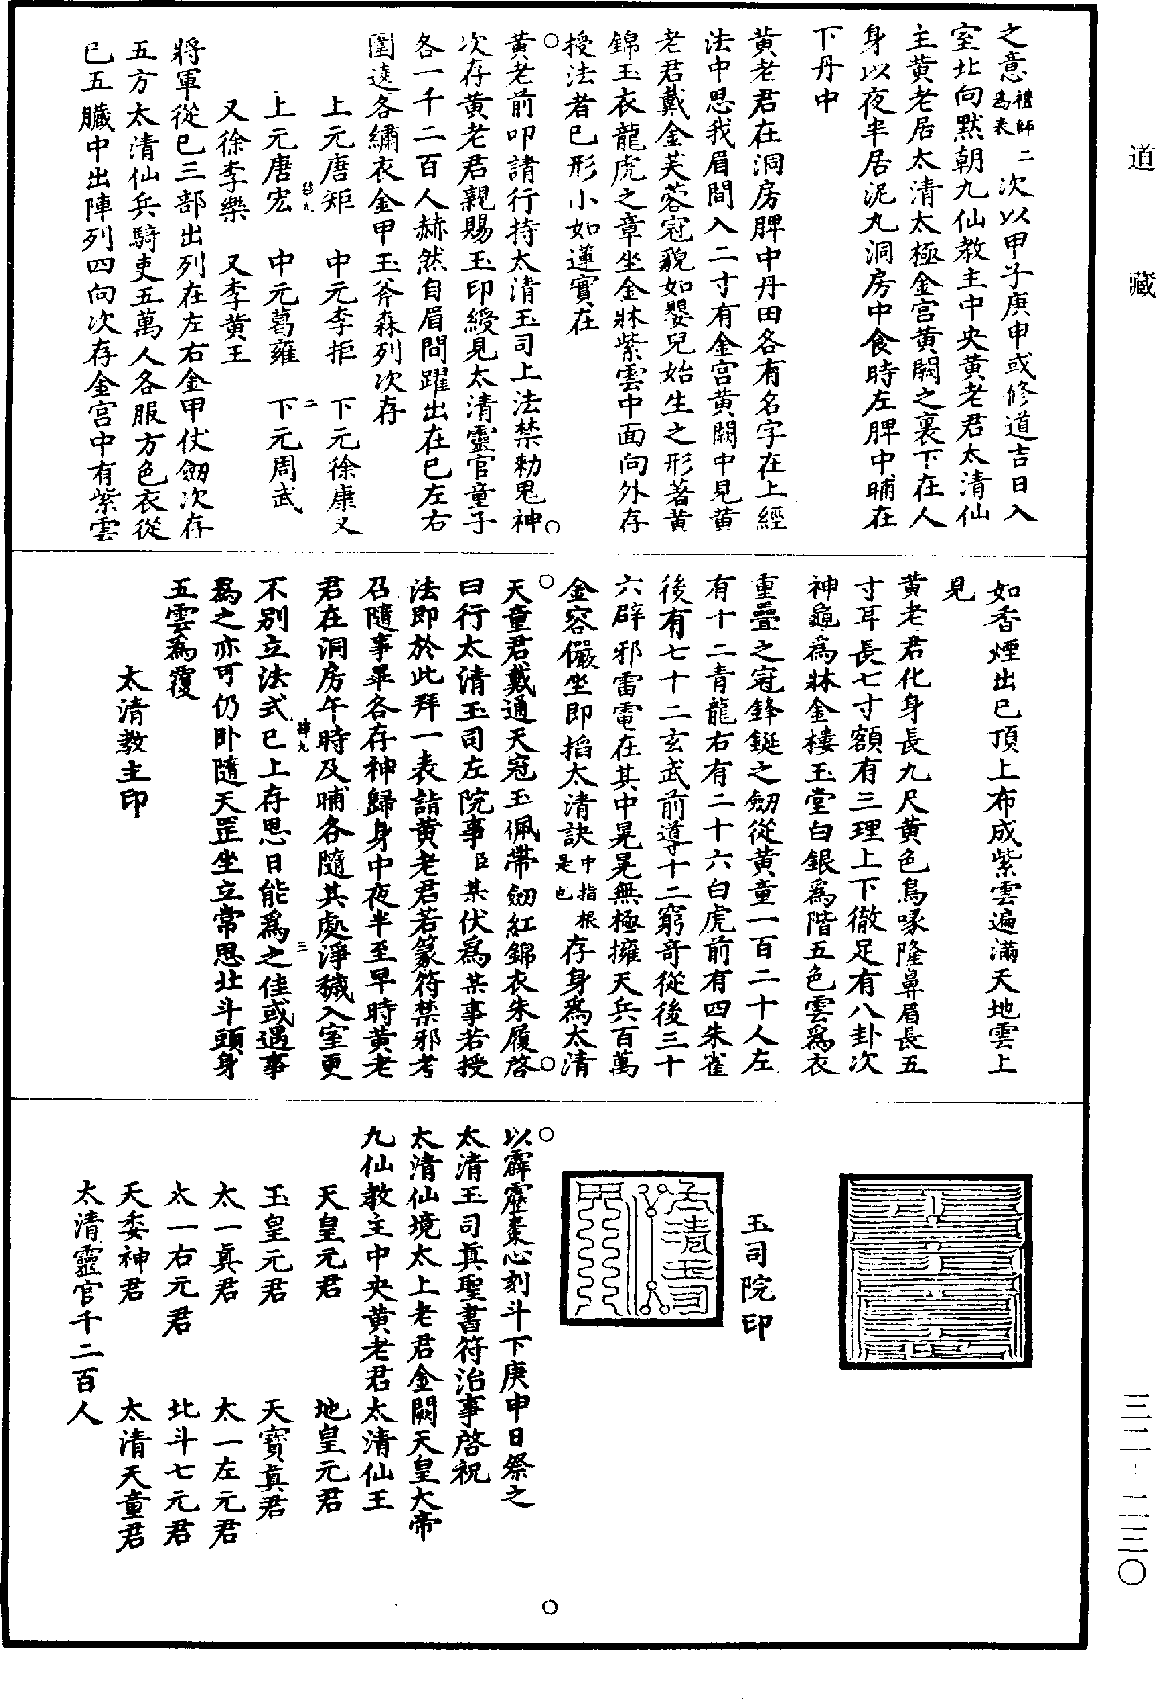 道藏
之意禮師爲表二次以甲子庚申或修道吉日入
室北向默朝九仙教主中央黃老君太清仙
主黃老居太清太極金宫黃闕之裏下在人
身以夜半居泥丸洞房中食時左脾中晡在
下丹中
黃老君在洞房脾中丹田各有名字在上經
法中思我眉間入二寸有金宫黃闕中見黃
老君戴金芙蓉冠貌如嬰兒始生之形著黃
錦玉衣龍虎之章坐金牀紫雲中面向外存
授法者已形小如蓮實在
黃老前叩請行持太清玉司上法禁勑鬼神
次存黃老君親賜玉印綬見太清靈官童子
各一千二百人赫然自眉間躍出在已左右
圍遶各繡衣金甲玉斧森列次存
上元唐矩　中元李拒　下元徐康又
上元唐宏　中元葛雍　下元周武
又徐李樂　又李黃王
將軍從已三部出列在左右金甲仗劒次存
五方太清仙兵騎吏五萬人各服方色衣從
已五臟中出陣列四向次存金宫中有紫雲
如香煙出已頂上布成紫雲遍滿天地雲上
見
黃老君化身長九尺黃色鳥喙隆鼻眉長五
寸耳長七寸額有三理上下徹足有八卦次
神龜爲牀金樓玉堂白銀爲階五色雲爲衣
重疊之冠鋒鋋之劒從黃童一百二十人左
有十二青龍右有二十六白虎前有四朱雀
後有七十二玄武前導十二窮奇從後三十
六辟邪雷電在其中晃晃無極擁天兵百萬
金容儼坐即搯太清訣中指根是也存身爲太清
天童君戴通天冠玉佩帶劒紅錦衣朱履啓
曰行太清玉司左院事臣某伏爲某事若授
法即於此拜一表詣黃老君若篆符禁邪考
召隨事畢各存神歸身中夜半至早時黃老
君在洞房午時及晡各隨其處淨穢入室更
不别立法式已上存思日能爲之佳或遇事
爲之亦可仍卧隨天罡坐立常思北斗頭身
五雲爲覆
太清教主印
玉司院印
以霹靂棗心刻斗下庚申日祭之
太清玉司眞聖書符治事啓祝
太清仙境太上老君金闕天皇大帝
九仙教主中央黃老君太清仙王
天皇元君　地皇元君
玉皇元君　天寶眞君
太一眞君　太一左元君
太一右元君　北斗七元君
天委神君　太清天童君
太清靈官千二百人
三二·二三〇